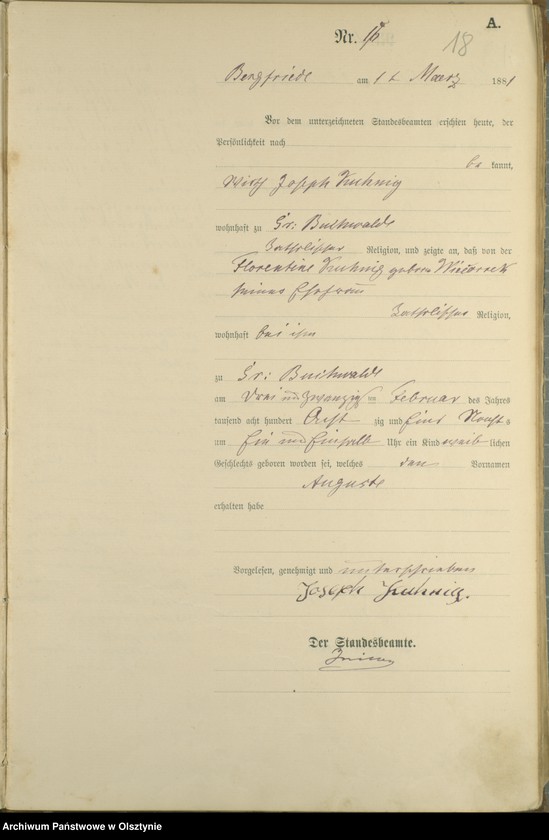 A.
Nr. 18
18
Bergfriede am 1 t März 1881
Vor dem unterzeichneten Standesbeamten erschien heute, der
Persönlichkeit nach
be kannt,
Wirth Joseph Kuhnig
wohnhaft zu Gr: Buchwalde
katholischer Religion, und zeigte an, daß von der
Florentine Kuhnig geborn
seiner Ehefrau
katholischer Religion,
wohnhaft bei ihm
zu Gr: Buchwalde
am drei und zwanzig ten Februar des Jahres
tausend acht hundert Acht zig und Eins Nachts
um Ein und Einhalb Uhr ein Kind weib lichen
Geschlechts geboren worden sei, welches den Vornamen
Auguste
erhalten habe
Vorgelesen, genehmigt und unterschrieben
Joseph Kuhnig.
Der Standesbeamte.
Archiwum Państwowe w Olsztynie